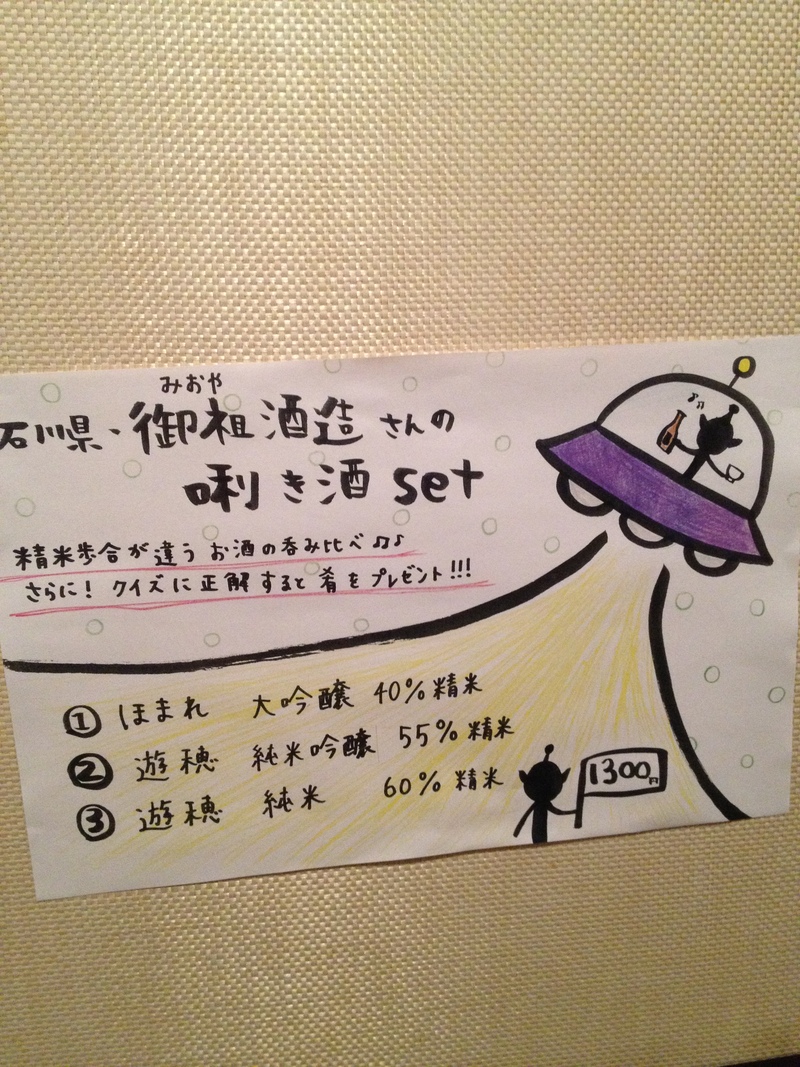 みおや
石川県・御祖酒造さんの
唎き酒set
精米歩合が違うお酒の呑み比べ♫♪
さらに!クイズに正解すると肴をプレゼント!!!
① ほまれ 大吟醸 40%精米
② 遊穂 純米吟醸 55%精米
③ 遊穂 純米 60%精米
1300円